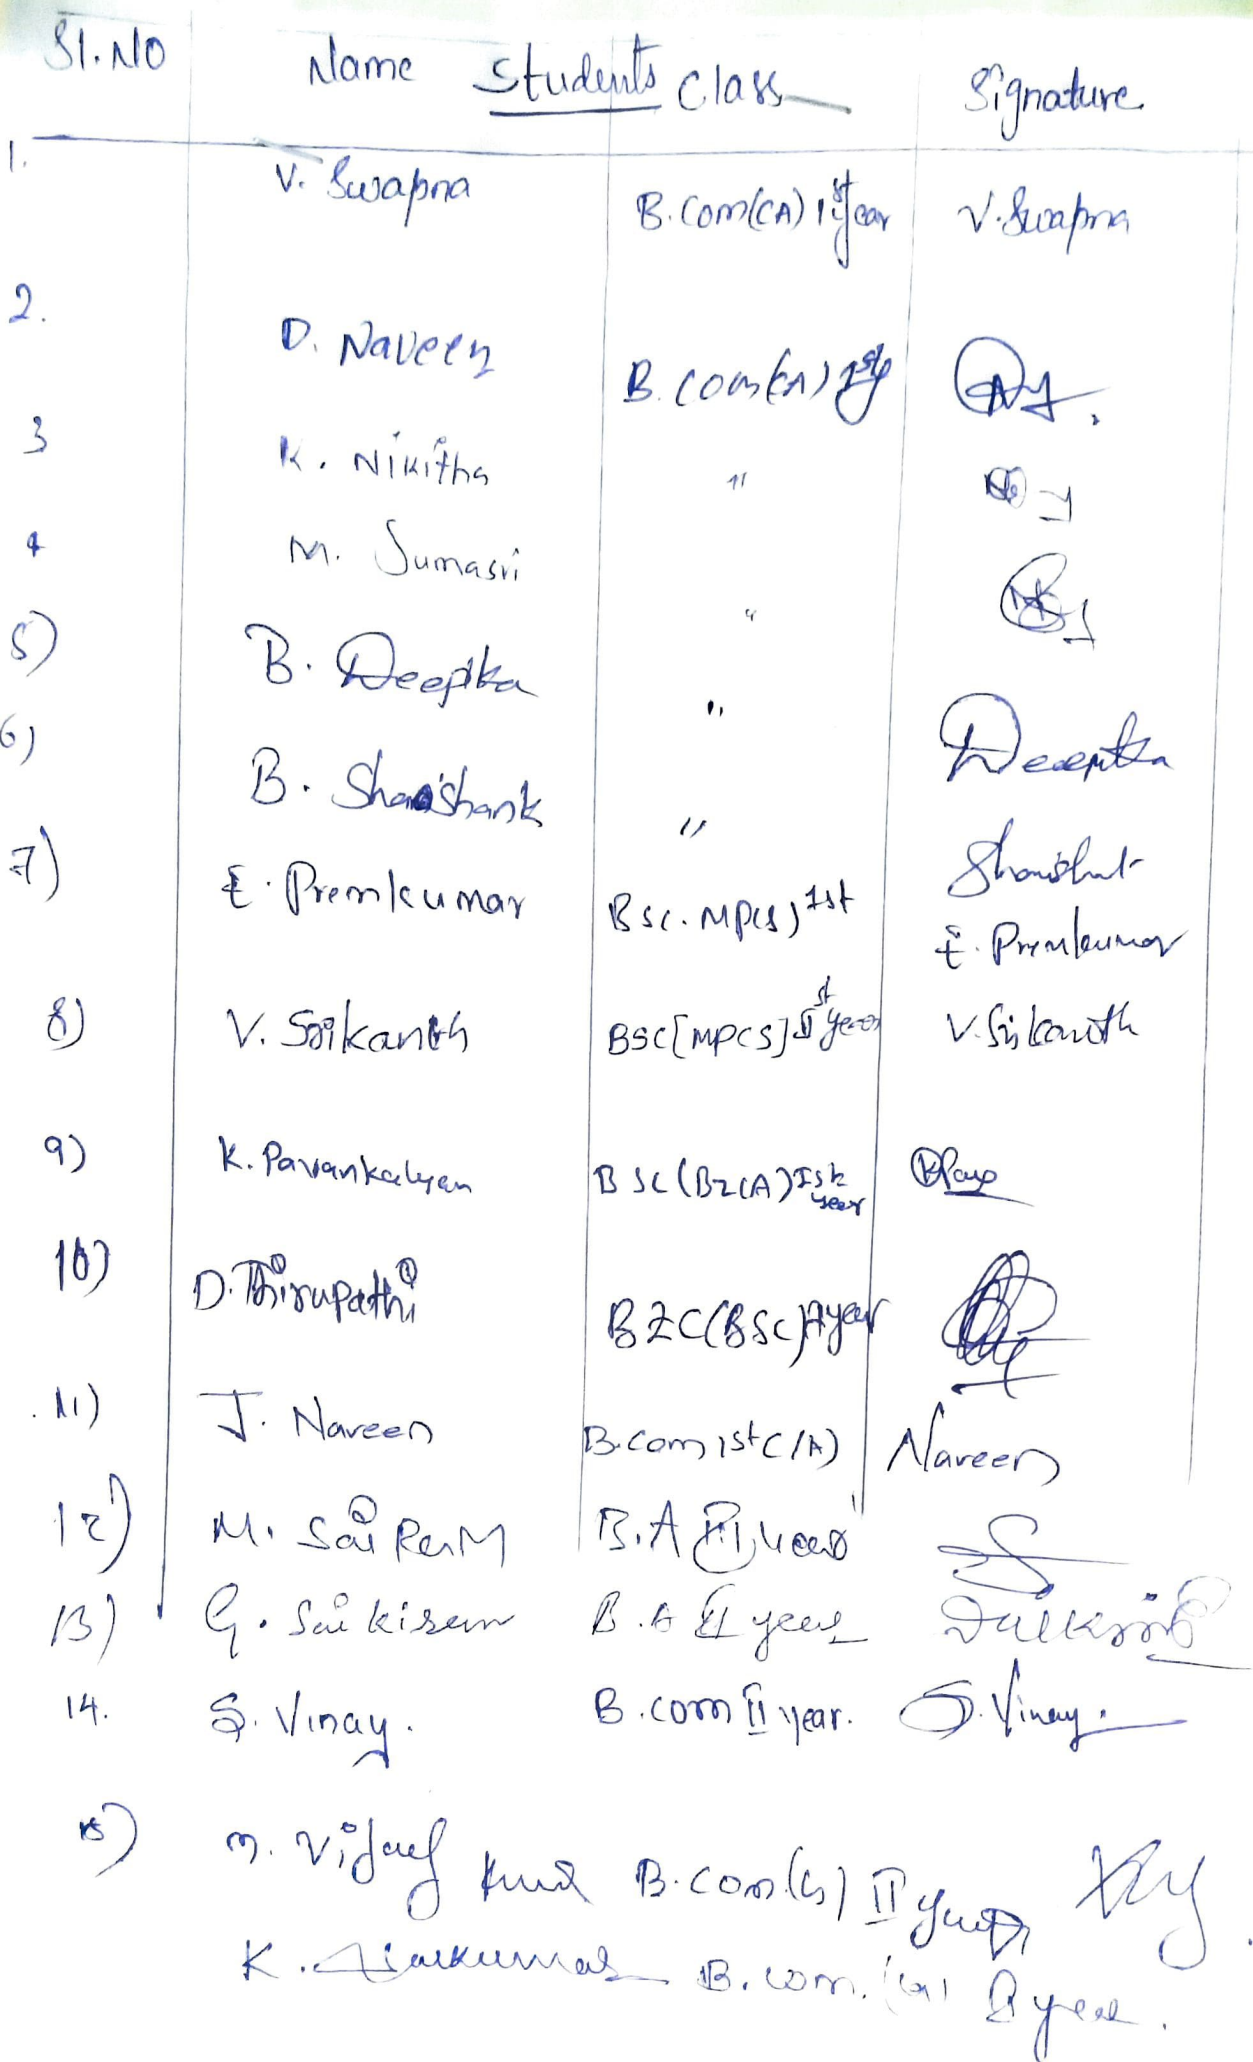 Sl.No Name Students Class Signature
1. V. Swapna B.Com(CA) 1st year V. Swapna
2. D. Naveen B.Com(CA) 1st y
3 K. Nikitha "
4 M. Sumasri "
5) B. Deepika " Deepika
6) B. Shashank " Shashank
7) E. Premkumar BSC.MPCS) Ist E. Premkumar
8) V. Srikanth BSC[MPCS] Ist year V. Srikanth
9) K. Pavankalyan BSC(BZCA) Ist year
10) D. Thirupathi BZC(BSC) I year
11) J. Naveen B.Com 1st C/A) Naveen
12) M. Sai Ram B.A III year
13) G. Sai kisan B.A II year
14. S. Vinay. B.com II year. S. Vinay.
15) M. Vijay B.com. II year
K. B.com. year.